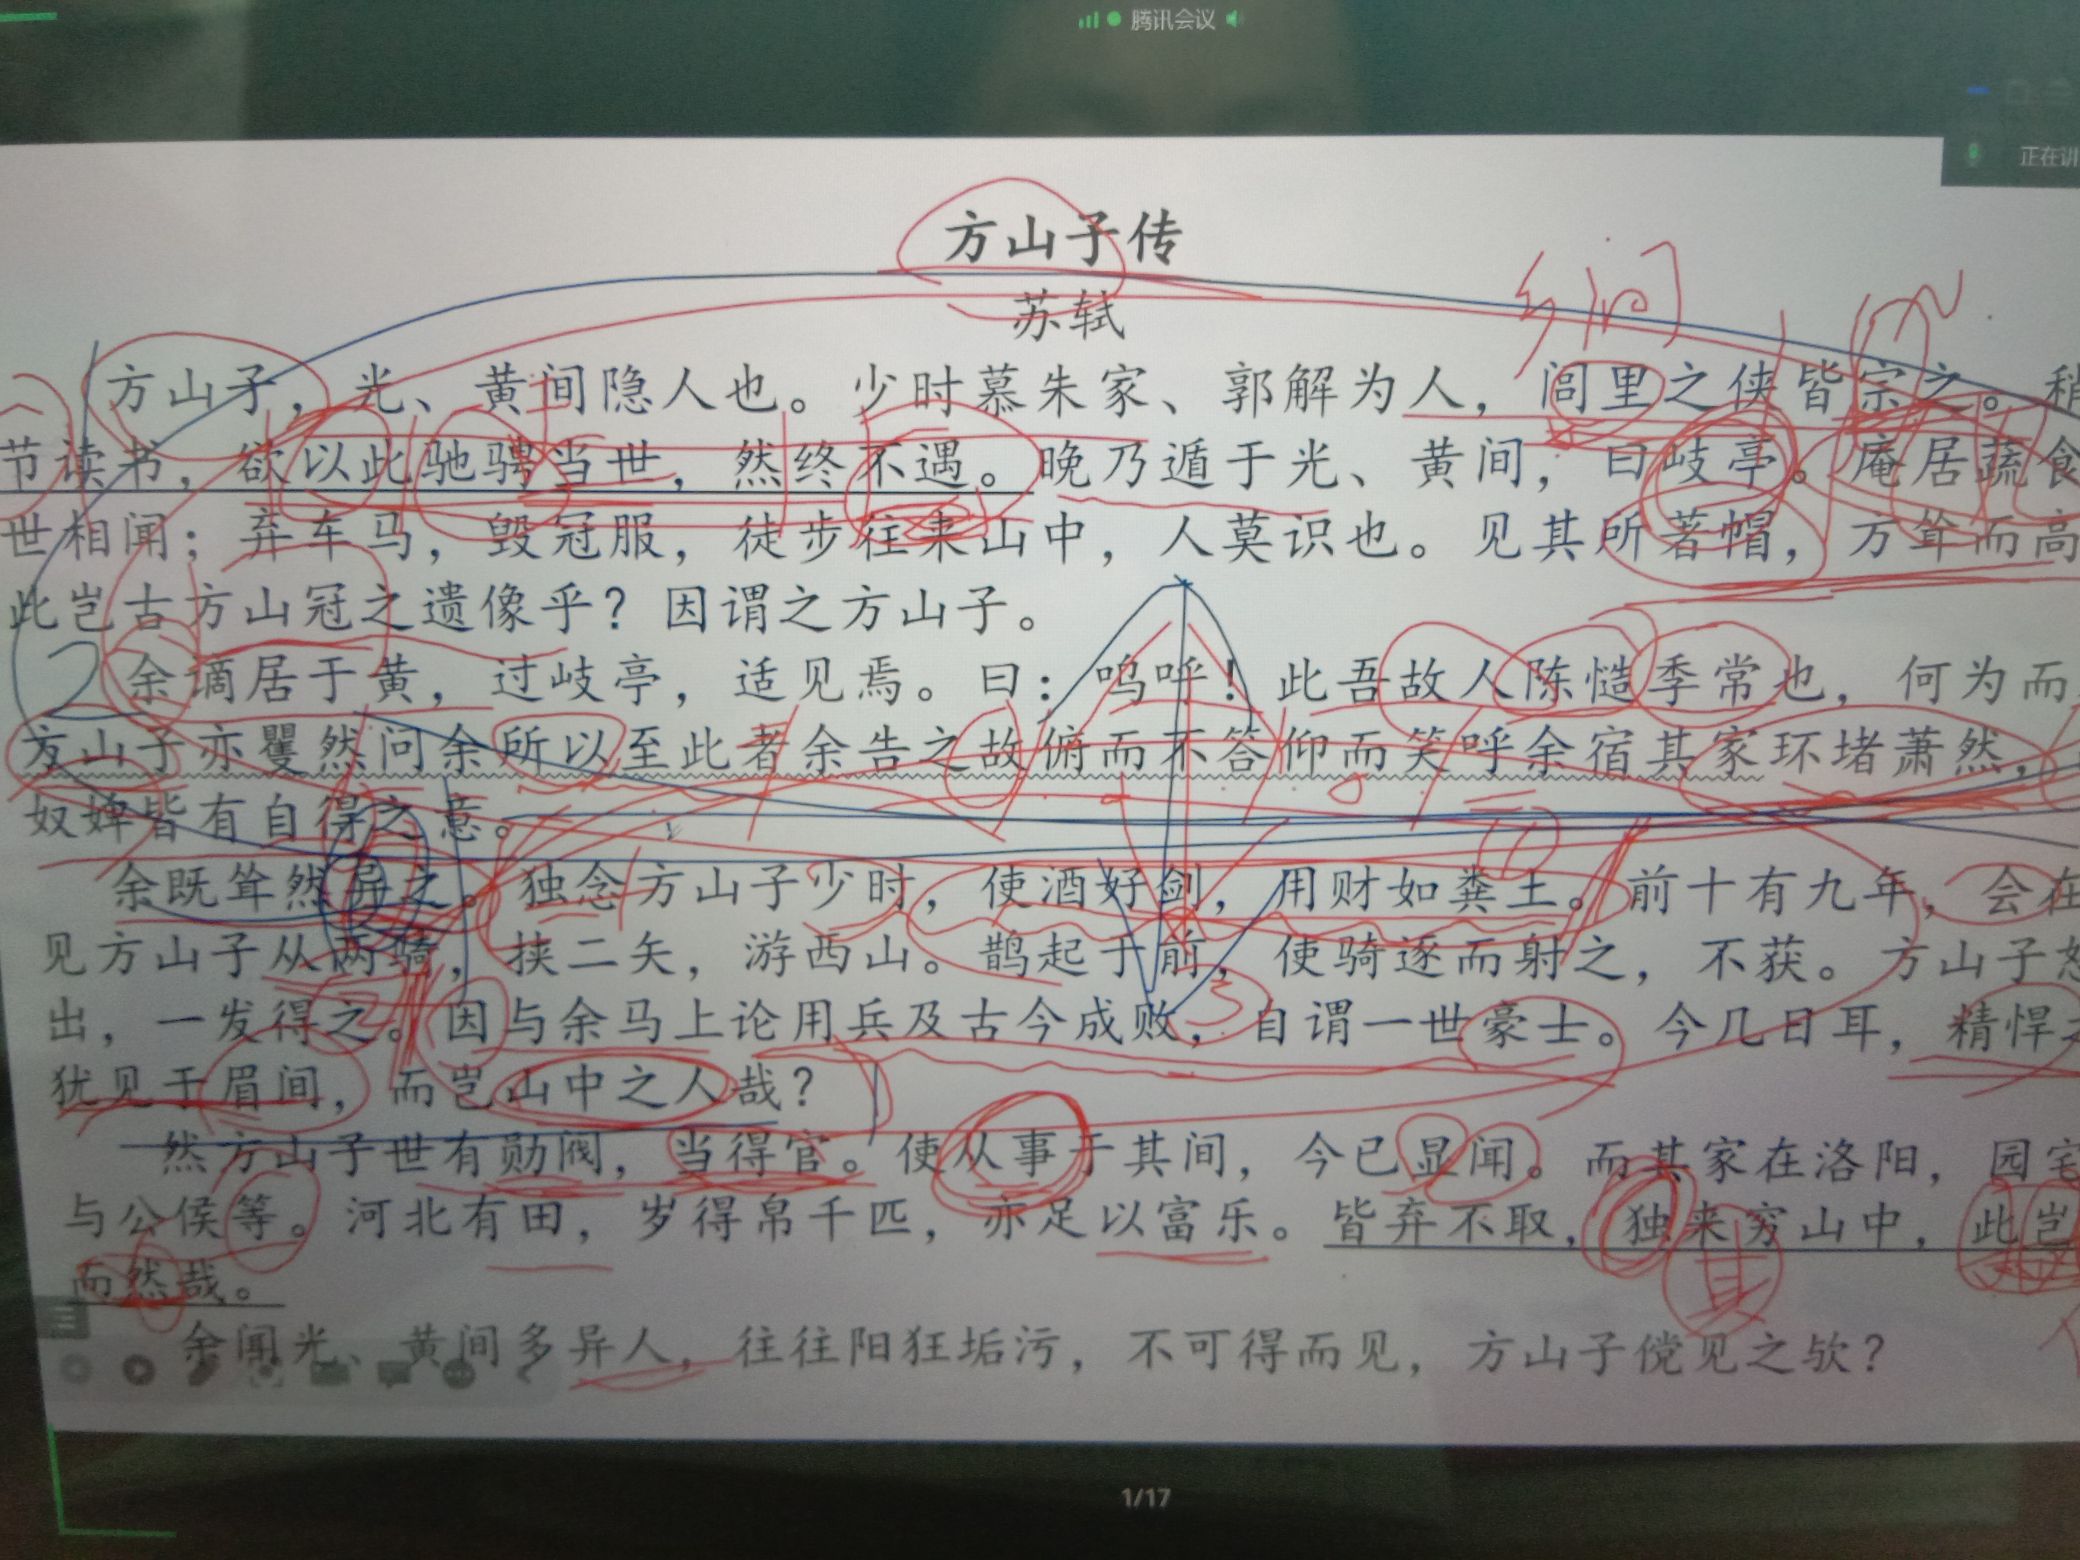 腾讯会议
正在讲
方山子传
苏轼
乡间
方山子，光、黄间隐人也。少时慕朱家、郭解为人，闾里之侠皆宗之。稍
节读书，欲以此驰骋当世，然终不遇。晚乃遁于光、黄间，曰岐亭。庵居蔬食
世相闻；弃车马，毁冠服，徒步往来山中，人莫识也。见其所著帽，方耸而高
此岂古方山冠之遗像乎？因谓之方山子。
2
余谪居于黄，过岐亭，适见焉。曰：呜呼！此吾故人陈慥季常也，何为而
方山子亦矍然问余所以至此者余告之故俯而不答仰而笑呼余宿其家环堵萧然，
奴婢皆有自得之意。
余既耸然异之。独念方山子少时，使酒好剑，用财如粪土。前十有九年，会在
见方山子从两骑，挟二矢，游西山。鹊起于前，使骑逐而射之，不获。方山子怒
出，一发得之。因与余马上论用兵及古今成败，自谓一世豪士。今几日耳，精悍之
3
犹见于眉间，而岂山中之人哉？
然方山子世有勋阀，当得官。使从事于其间，今已显闻。而其家在洛阳，园宅
与公侯等。河北有田，岁得帛千匹，亦足以富乐。皆弃不取，独来穷山中，此岂
其
而然哉。
余闻光、黄间多异人，往往阳狂垢污，不可得而见，方山子傥见之欤？
1/17